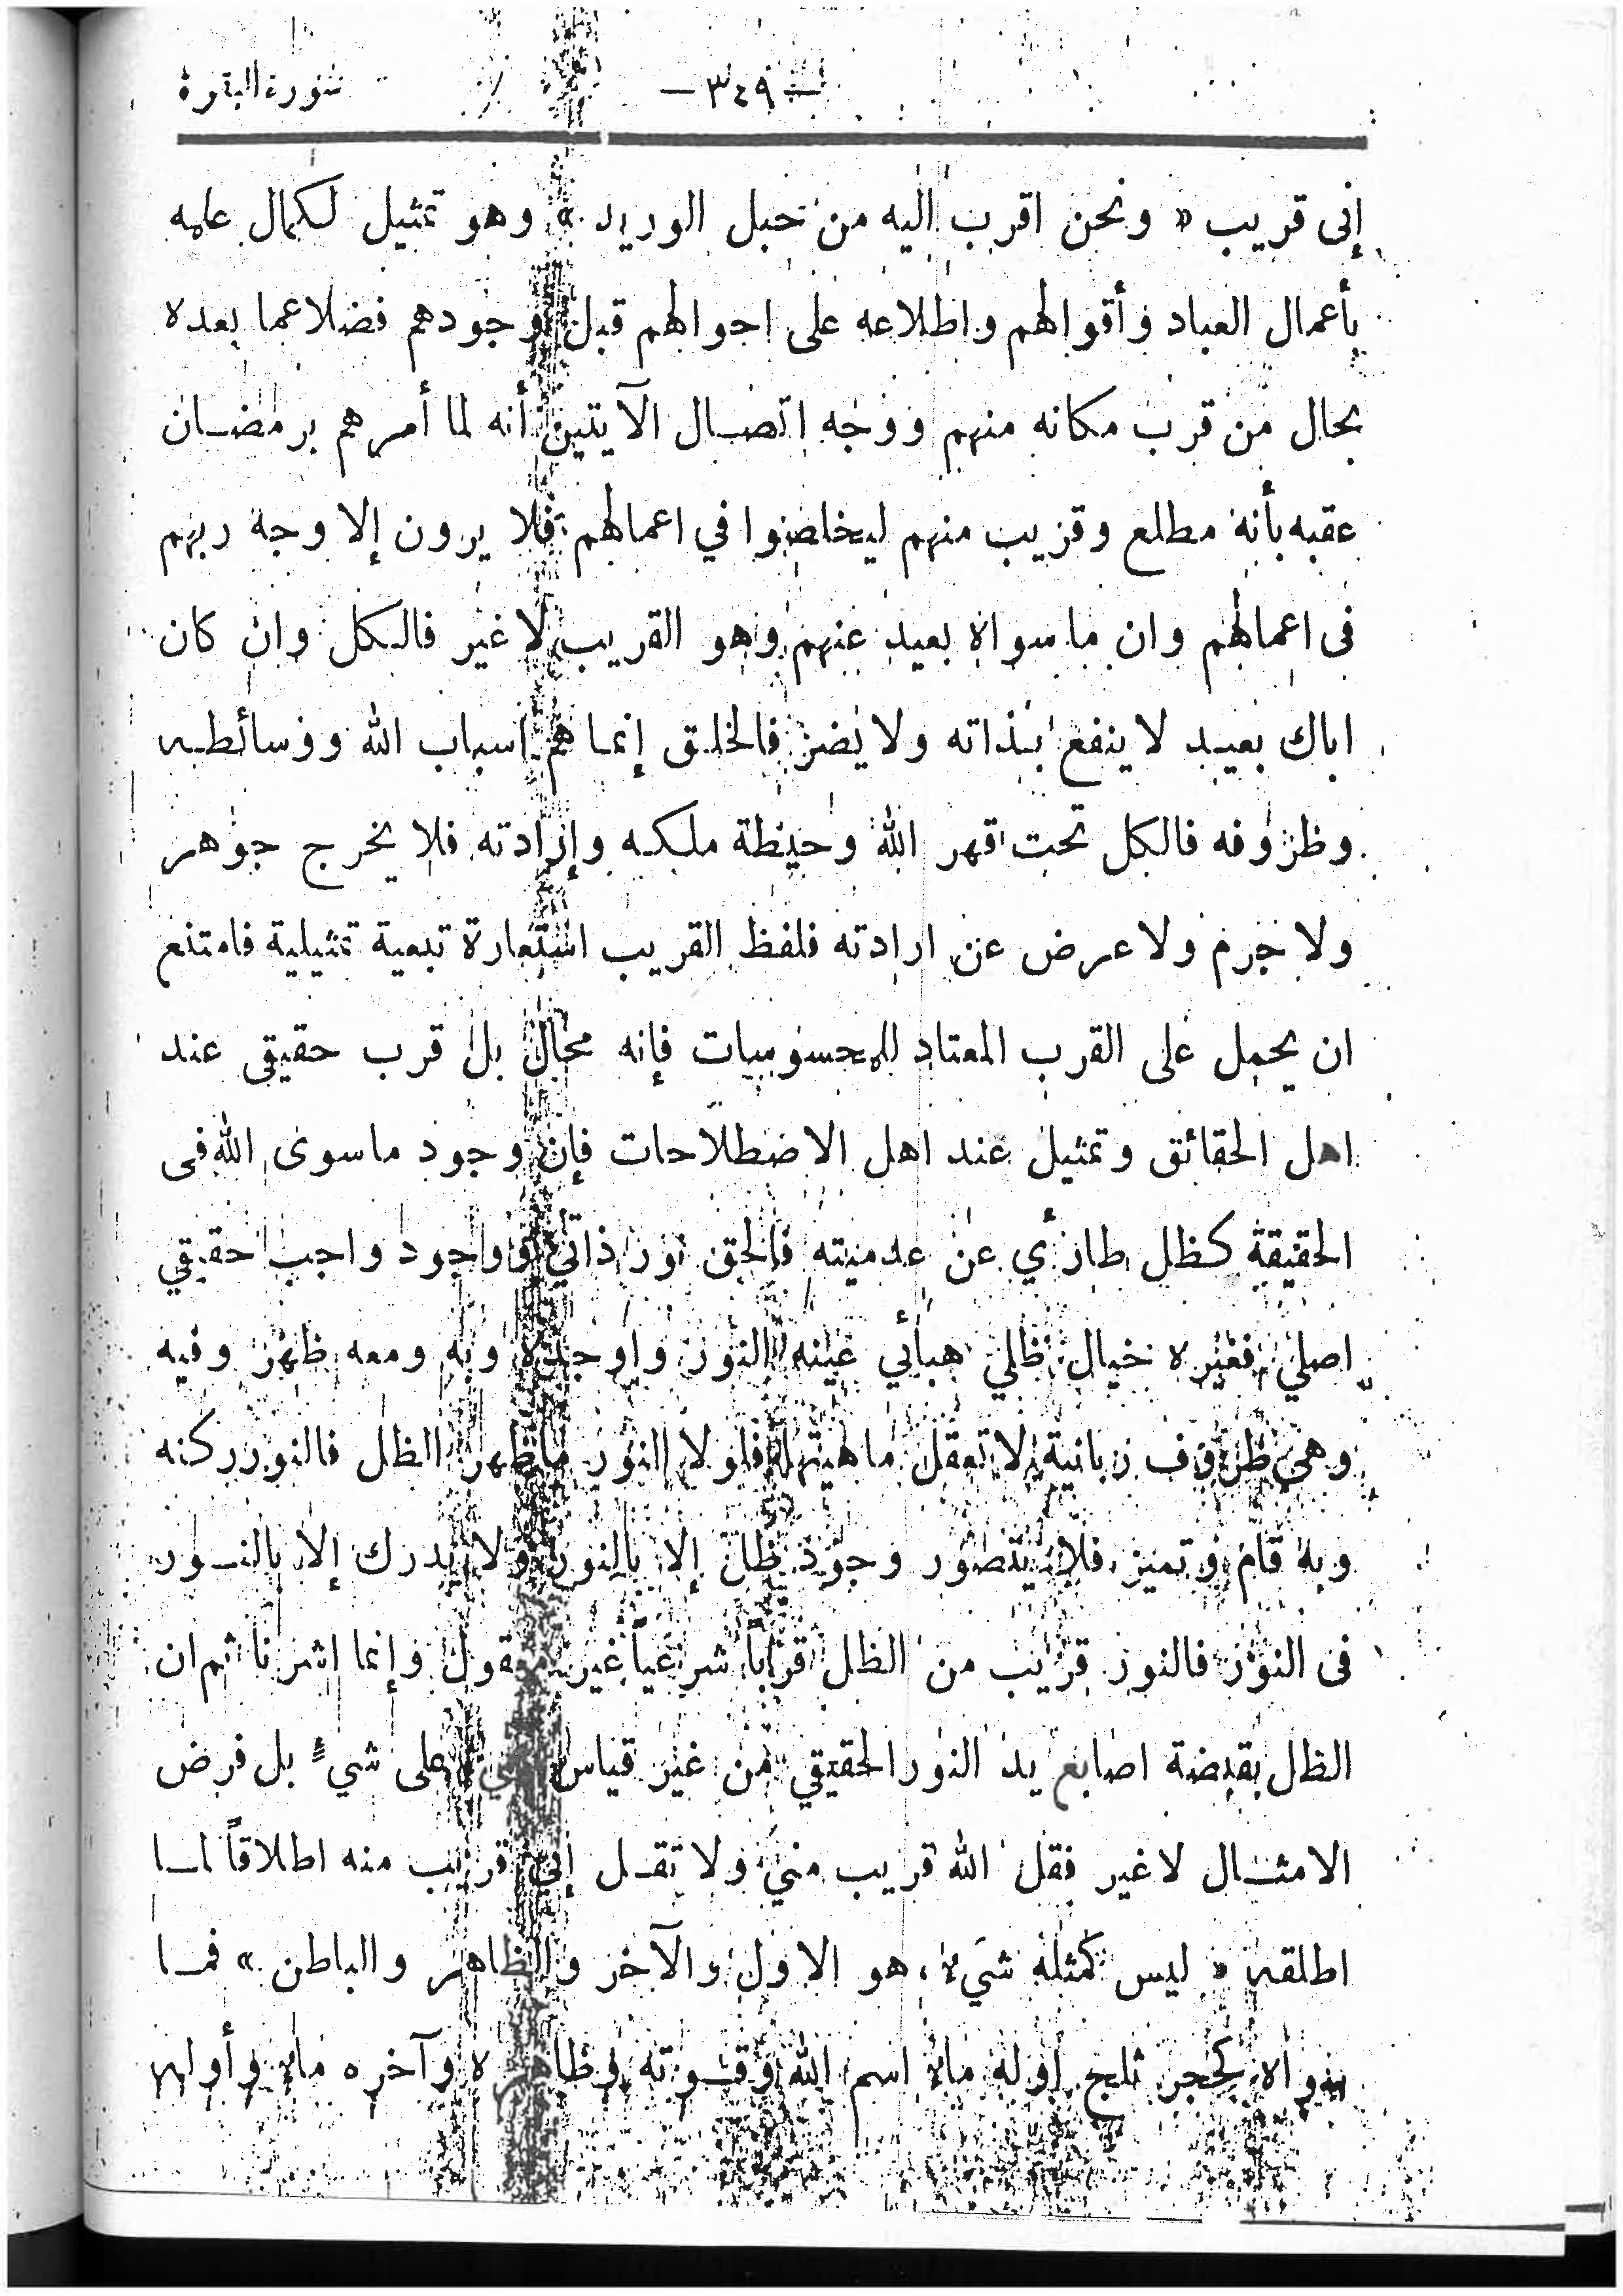 سورة البقرة
— ٣٤٩ —
إنى قريب « ونحن اقرب اليه من حبل الوريد » وهو تمثيل لكمال علمه
بأعمال العباد وأقوالهم واطلاعه على احوالهم قبل وجودهم فضلا عما بعده
بحال من قرب مكانه منهم ووجه اتصال الآيتين أنه لما أمرهم برمضان
عقبه بأنه مطلع وقريب منهم ليخلصوا في اعمالهم فلا يرون إلا وجه ربهم
فى اعمالهم وان ما سواه بعيد عنهم وهو القريب لا غير فالكل وان كان
اباك بعيد لا ينفع بذاته ولا يضر فالخلق إنما هم اسباب الله ووسائطه
وظروفه فالكل تحت قهر الله وحيطة ملكه وإرادته فلا يخرج جوهر
ولا جرم ولا عرض عن ارادته فلفظ القريب استعارة تبعية تمثيلية فامتنع
ان يحمل على القرب المعتاد للمحسوسات فإنه محال بل قرب حقيقى عند
اهل الحقائق وتمثيل عند اهل الاصطلاحات فإن وجود ما سوى الله فى
الحقيقة كظل طارئ عن عدميته فالحق نور ذاتي ووجود واجب حقيقي
اصلي فغيره خيال ظلي هبائي عينه النور واوجده وبه ومعه ظهر وفيه
وهي ظروف زبانية لا تعقل ماهيتها فلولا النور ما ظهر الظل فالنور ركنه
وبه قام وتميز فلا يتصور وجود ظل إلا بالنور ولا يدرك إلا بالنور
فى النور فالنور قريب من الظل قرباً شرعياً غير معقول وإنما اشرنا ثم ان
الظل بقبضة اصابع يد النور الحقيقي من غير قياس على شيءٍ بل فرض
الامثال لا غير فقل الله قريب مني ولا تقل إني قريب منه اطلاقاً لما
اطلقه « ليس كمثله شيء ، هو الاول والآخر والظاهر والباطن » فما
سواه كحجر ثلج اوله ماء اسم الله وقوته وظاهره وآخره ماء وأوله